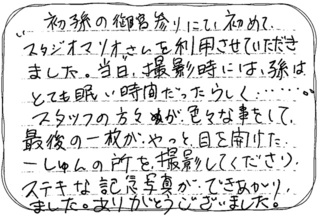 初孫の御宮参りにてい初めて、
スタジオマリオさんを利用させていただき
ました。当日、撮影時には、孫は、
とても眠い時間だったらしく……
スタッフの方々が色々な事をして、
最後の一枚が、やっと、目を開けた
一しゅんの所を、撮影してくださり、
ステキな記念写真が、できあがり、
ました。ありがとうございました。